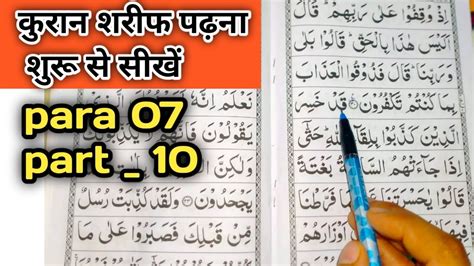 कुरान शरीफ पढ़ना
शुरू से सीखें
para 07
part _ 10
اِذْ وُقِفُوْا عَلٰى رَبِّهِمْ ؕ قَالَ
اَلَيْسَ هٰذَا بِالْحَقِّ ؕ قَالُوْا بَلٰى
وَرَبِّنَا ؕ قَالَ فَذُوْقُوا الْعَذَابَ
بِمَا كُنْتُمْ تَكْفُرُوْنَ قَدْ خَسِرَ
الَّذِيْنَ كَذَّبُوْا بِلِقَآءِ حَتّٰٓى
اِذَا جَآءَتْهُمُ السَّاعَةُ بَغْتَةً
قَالُوْا يٰحَسْرَتَنَا مَا فَرَّطْنَا
اَوْزَارَهُمْ
نَعْلَمُ اِنَّهٗ
يَقُوْلُوْنَ
وَلٰكِنَّ
يَجْحَدُوْنَ ۝۳۳ وَلَقَدْ كُذِّبَتْ رُسُلٌ
مِّنْ قَبْلِكَ فَصَبَرُوْا عَلٰى مَا